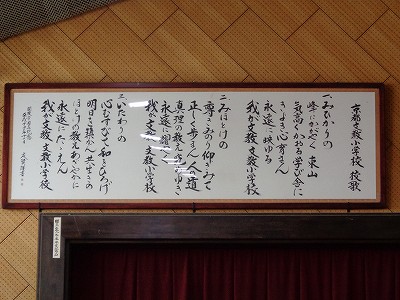 京都文教小学校 校歌
一、みひかりの
峰にかがやく 東山
気高くかおる 学び舎に
きよき心 育まん
永遠に映ゆる
我が文教 文教小学校
二、みほとけの
尊きみのり 仰ぎみて
正しく歩まん 人の道
真理の教え
永遠に
我が文教 文教小学校
三、いたわりの
心むすびて 和をひろげ
明日を築かん 共生きの
ほとけの教え あらやかに
永遠にたたえん
我が文教 文教小学校